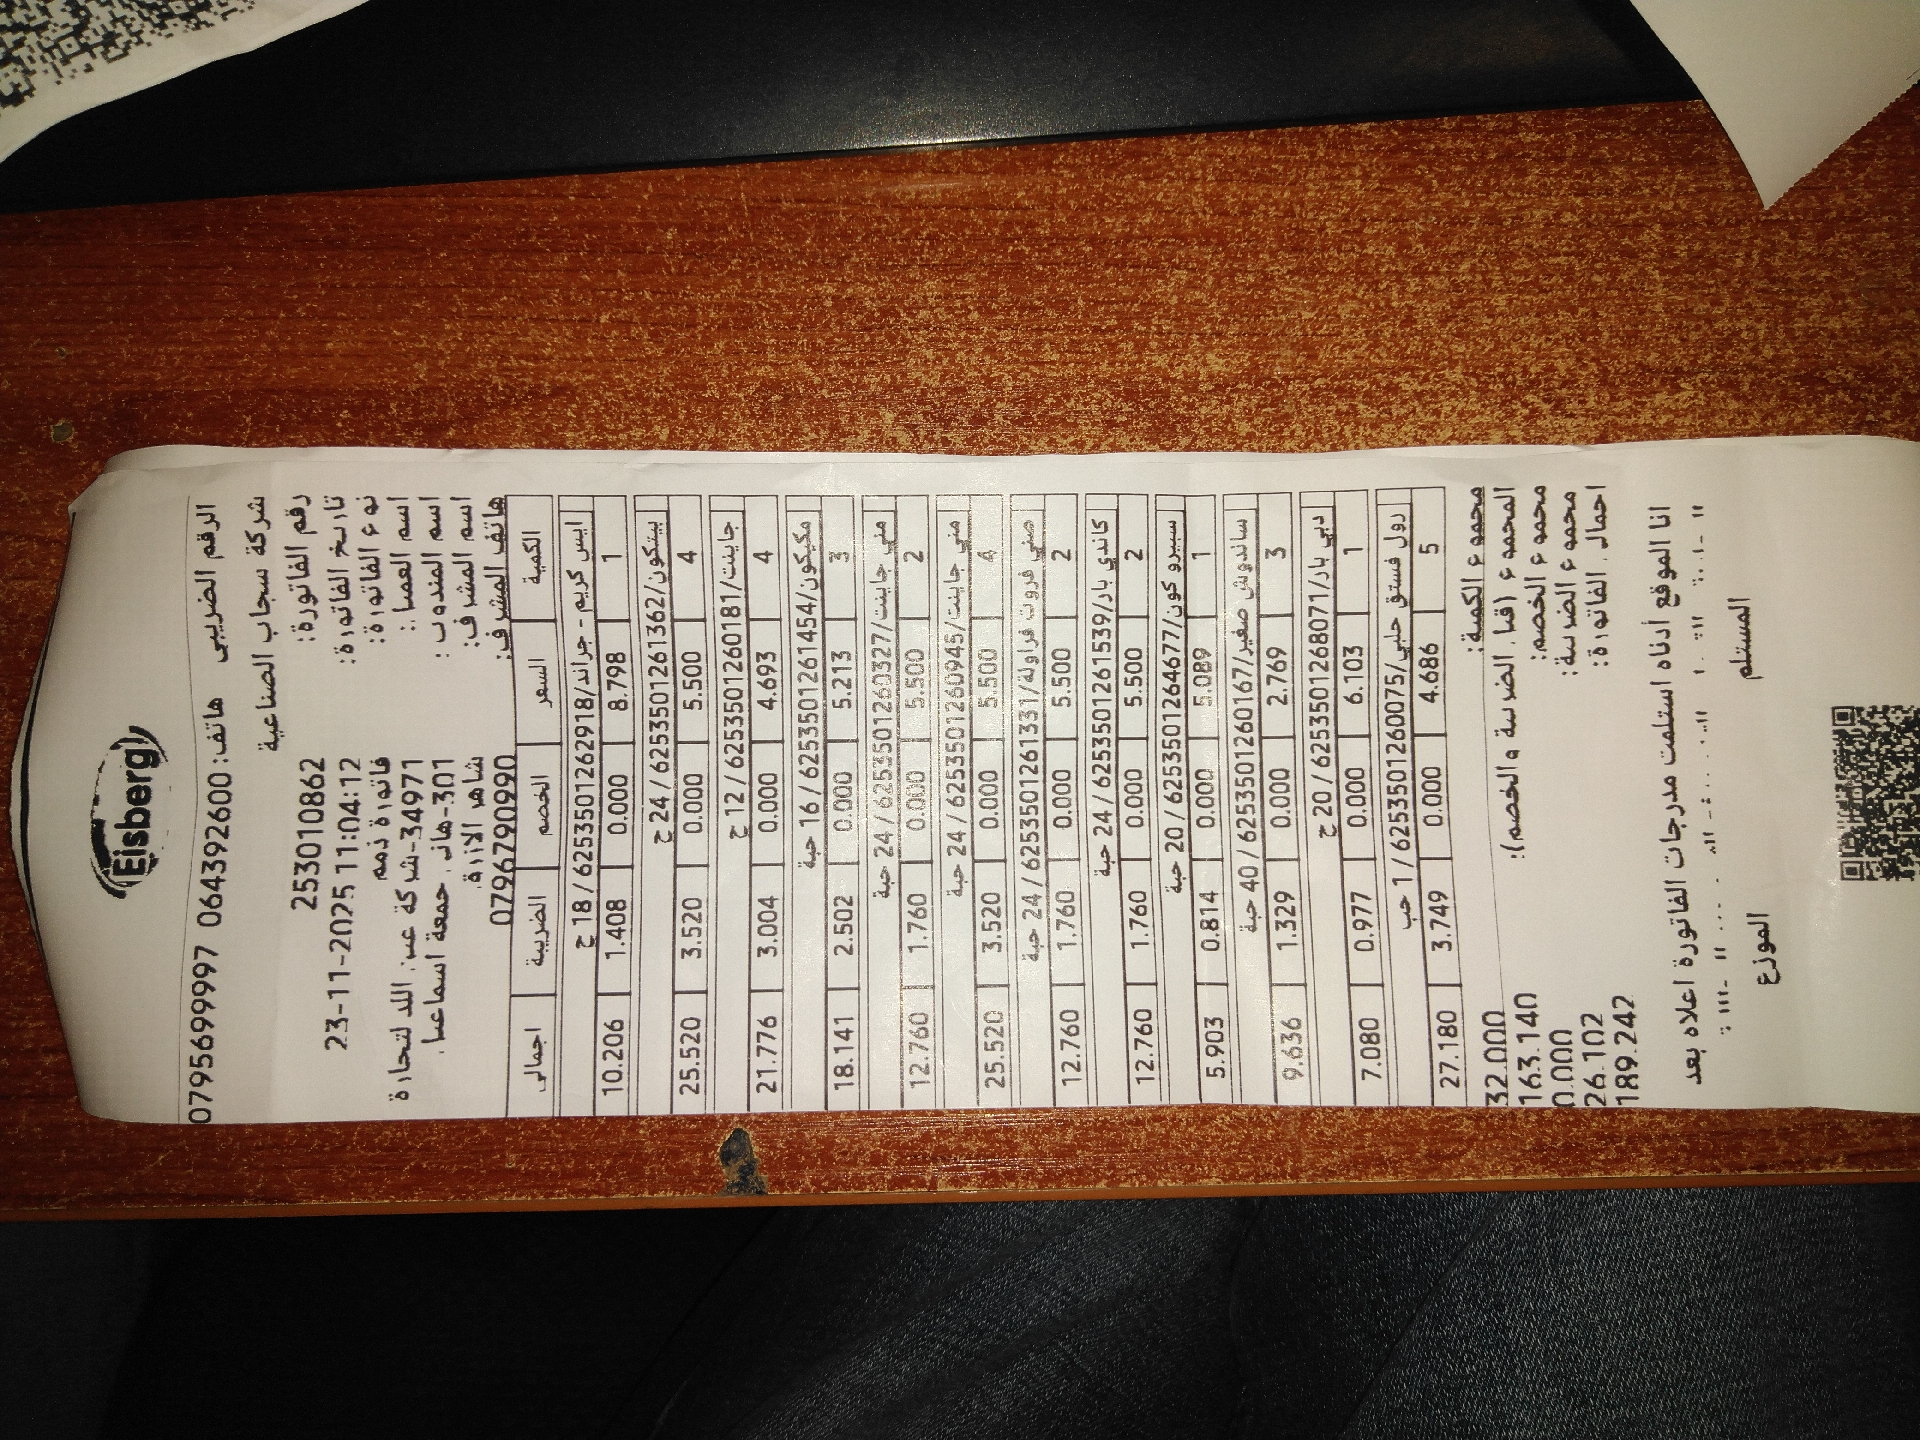 Eisberg
الرقم الضريبي هاتف: 0643926000 0795699997
شركة سجاب الصناعية
رقم الفاتورة: 253010862
تاريخ الفاتورة: 23-11-2025 11:04:12
نوع الفاتورة: فاتورة ذمم
اسم العميل: 34971-شركة عين اللد لتجارة
اسم المندوب: 301-هاني جمعة اسماعيل
اسم المشرف: شاهر
هاتف المشرف: 0796790990
الكمية السعر الخصم الضريبة اجمالي
ايس كريم - جراند/6253501262918 / 18 ح
1 8.798 0.000 1.408 10.206
بيتكون/6253501261362 / 24 ح
4 5.500 0.000 3.520 25.520
جاينت/6253501260181 / 12 ح
4 4.693 0.000 3.004 21.776
مكيكون/6253501261454 / 16 حبة
3 5.213 0.000 2.502 18.141
مني جاينت/6253501260327 / 24 حبة
2 5.500 0.000 1.760 12.760
مني جاينت/6253501260945 / 24 حبة
4 5.500 0.000 3.520 25.520
مني فروت فراولة/6253501261331 / 24 حبة
2 5.500 0.000 1.760 12.760
كاندي بار/6253501261539 / 24 حبة
2 5.500 0.000 1.760 12.760
سبيرو كون/6253501264677 / 20 حبة
1 5.089 0.000 0.814 5.903
ساندوش صغير/6253501260167 / 40 حبة
3 2.769 0.000 1.329 9.636
دبي بار/6253501268071 / 20 ح
1 6.103 0.000 0.977 7.080
رول فستق حلبي/6253501260075 / 1 حب
5 4.686 0.000 3.749 27.180
مجموع الكمية: 32.000
المجموع (قبل الضريبة والخصم): 163.140
مجموع الخصم: 0.000
مجموع الضريبة: 26.102
اجمالي الفاتورة: 189.242
انا الموقع أدناه استلمت مدرجات الفاتورة اعلاه بعد
المستلم الموزع